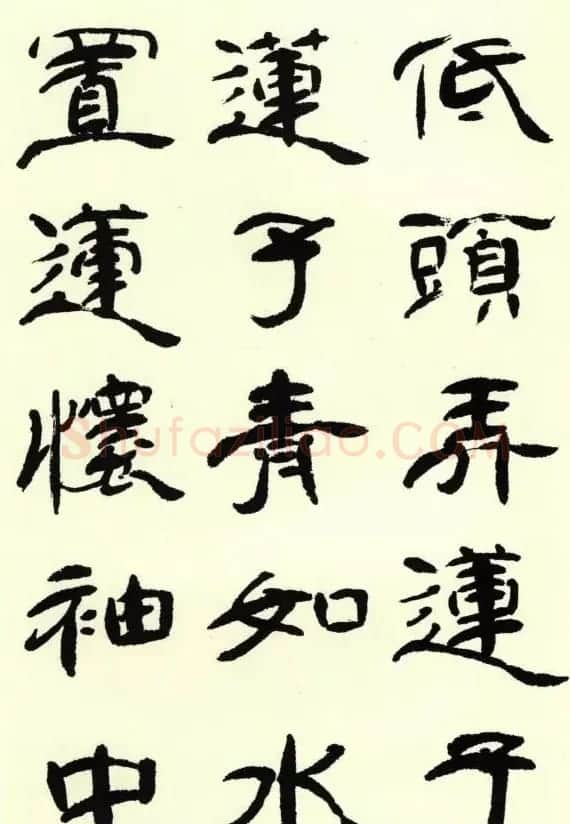 低頭弄蓮子
蓮子青如水
置蓮懷袖中
Shufaziliao.COM